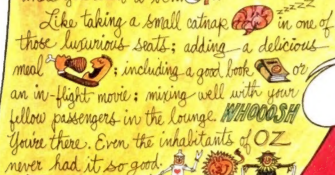 zzzzz
Like taking a small catnap in one of
those luxurious seats; adding a delicious
meal ; including a good book or
an in-flight movie; mixing well with your
fellow passengers in the lounge. WHOOOSH
You're there. Even the inhabitants of OZ
never had it so good.